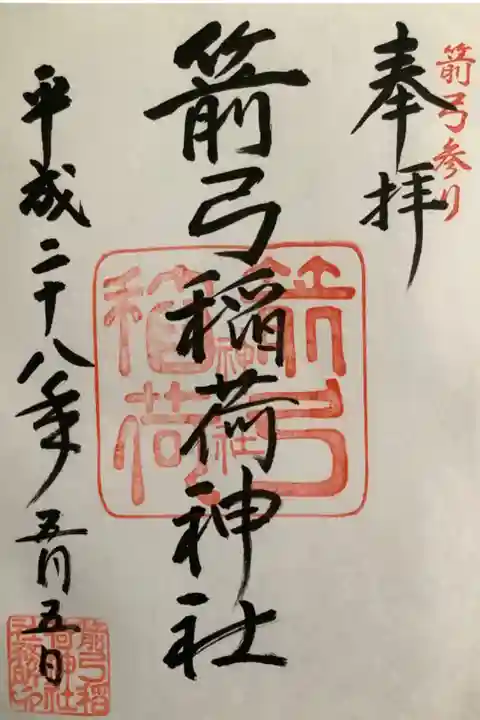 箭弓参り
奉拝
箭弓稲荷神社
箭弓
神社
稲荷
平成二十八年五月五日
箭弓稲
荷神社